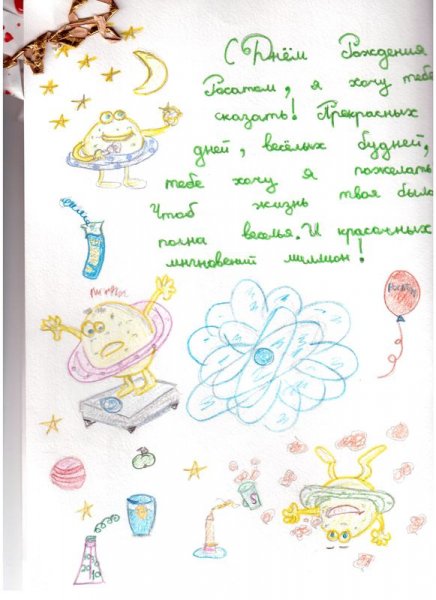 С Днём Рождения
Росатом, я хочу тебе
сказать! Прекрасных
дней, весёлых будней,
тебе хочу я пожелать
Чтоб жизнь твоя была
полна веселья. И красочных
мгновений миллион!
Росатом